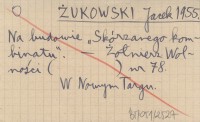 ŻUKOWSKI Jacek 1955.
Na budowie „Skórzanego kom-
binatu". — Żołnierz Wol-
ności (          ) nr 78.
W Nowym Targu.